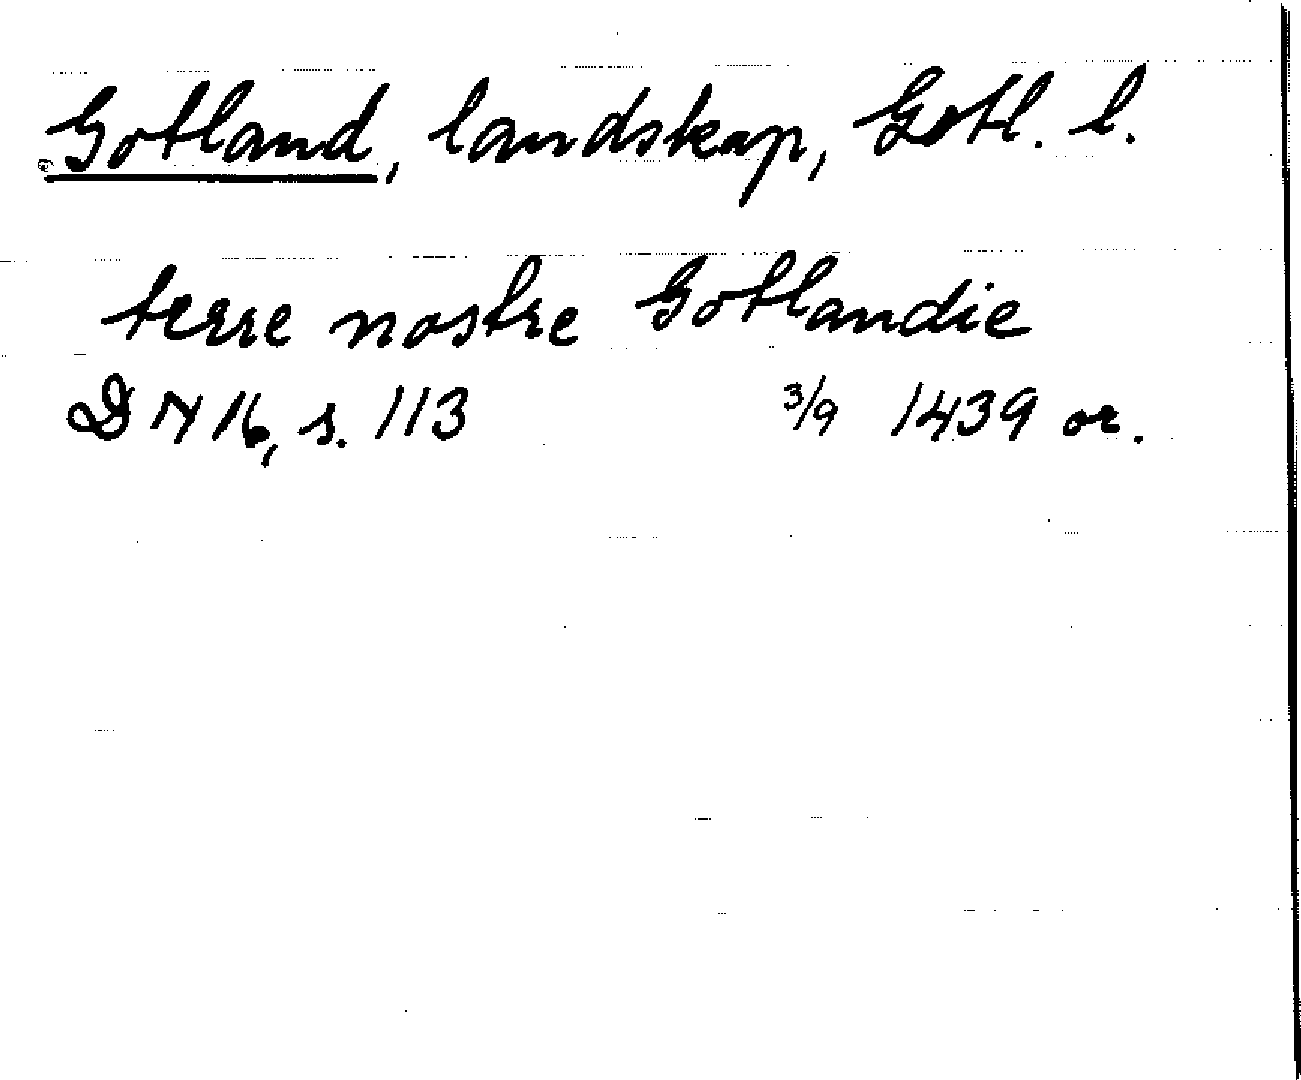 Gotland, landskap, Gotl. l.
terre nostre Gotlandie
DN 16, s. 113 3/9 1439 or.